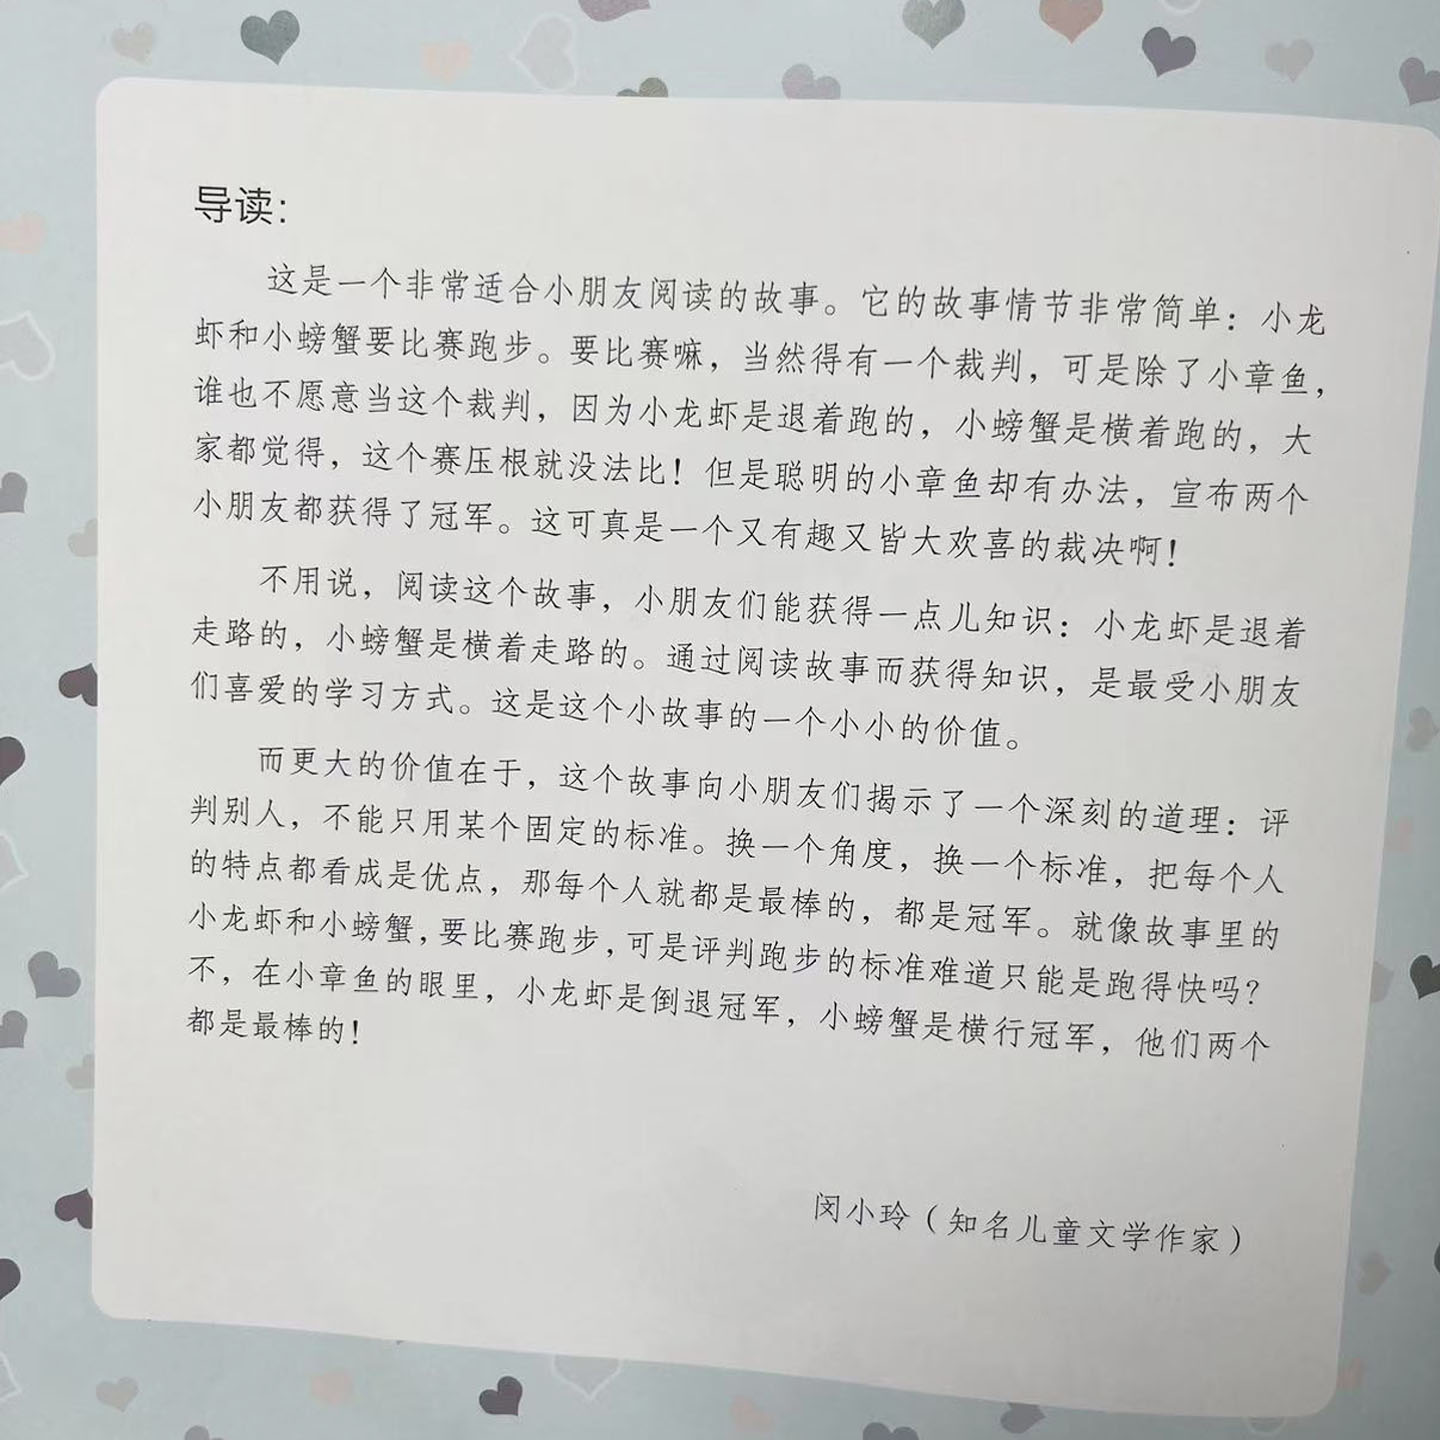 导读：
这是一个非常适合小朋友阅读的故事。它的故事情节非常简单：小龙
虾和小螃蟹要比赛跑步。要比赛嘛，当然得有一个裁判，可是除了小章鱼，
谁也不愿意当这个裁判，因为小龙虾是退着跑的，小螃蟹是横着跑的，大
家都觉得，这个赛压根就没法比！但是聪明的小章鱼却有办法，宣布两个
小朋友都获得了冠军。这可真是一个又有趣又皆大欢喜的裁决啊！
不用说，阅读这个故事，小朋友们能获得一点儿知识：小龙虾是退着
走路的，小螃蟹是横着走路的。通过阅读故事而获得知识，是最受小朋友
们喜爱的学习方式。这是这个小故事的一个小小的价值。
而更大的价值在于，这个故事向小朋友们揭示了一个深刻的道理：评
判别人，不能只用某个固定的标准。换一个角度，换一个标准，把每个人
的特点都看成是优点，那每个人就都是最棒的，都是冠军。就像故事里的
小龙虾和小螃蟹，要比赛跑步，可是评判跑步的标准难道只能是跑得快吗？
不，在小章鱼的眼里，小龙虾是倒退冠军，小螃蟹是横行冠军，他们两个
都是最棒的！
闵小玲（知名儿童文学作家）